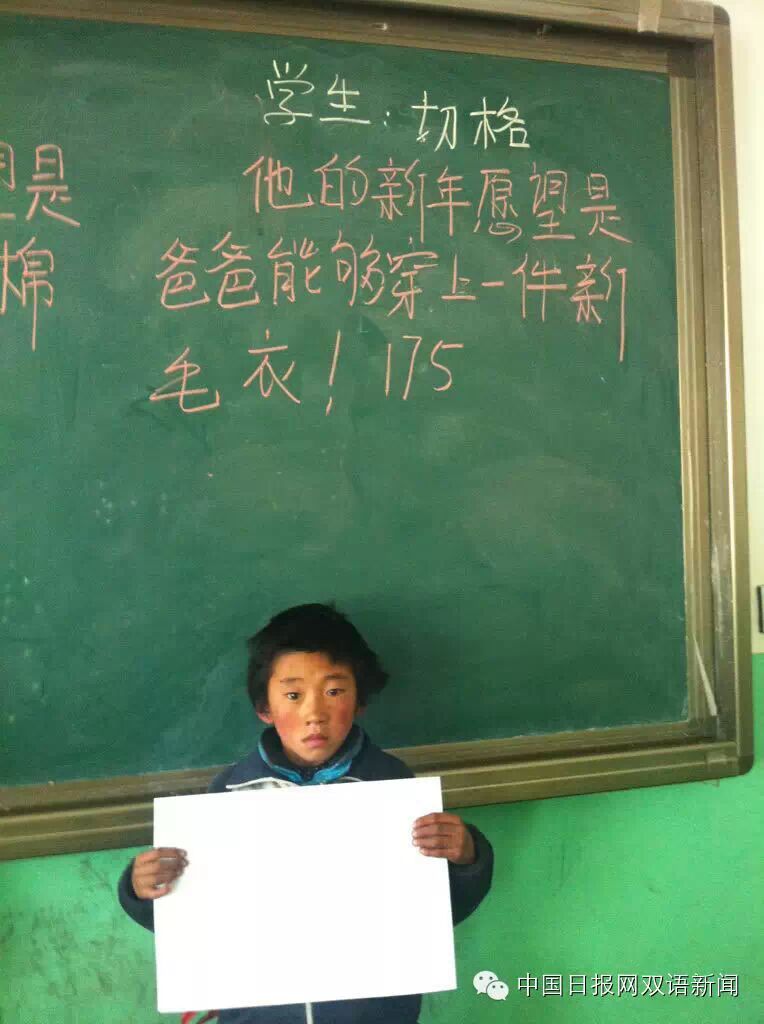 学生：切格
他的新年愿望是
爸爸能够穿上一件新
毛衣！175
望是
棉
中国日报网双语新闻